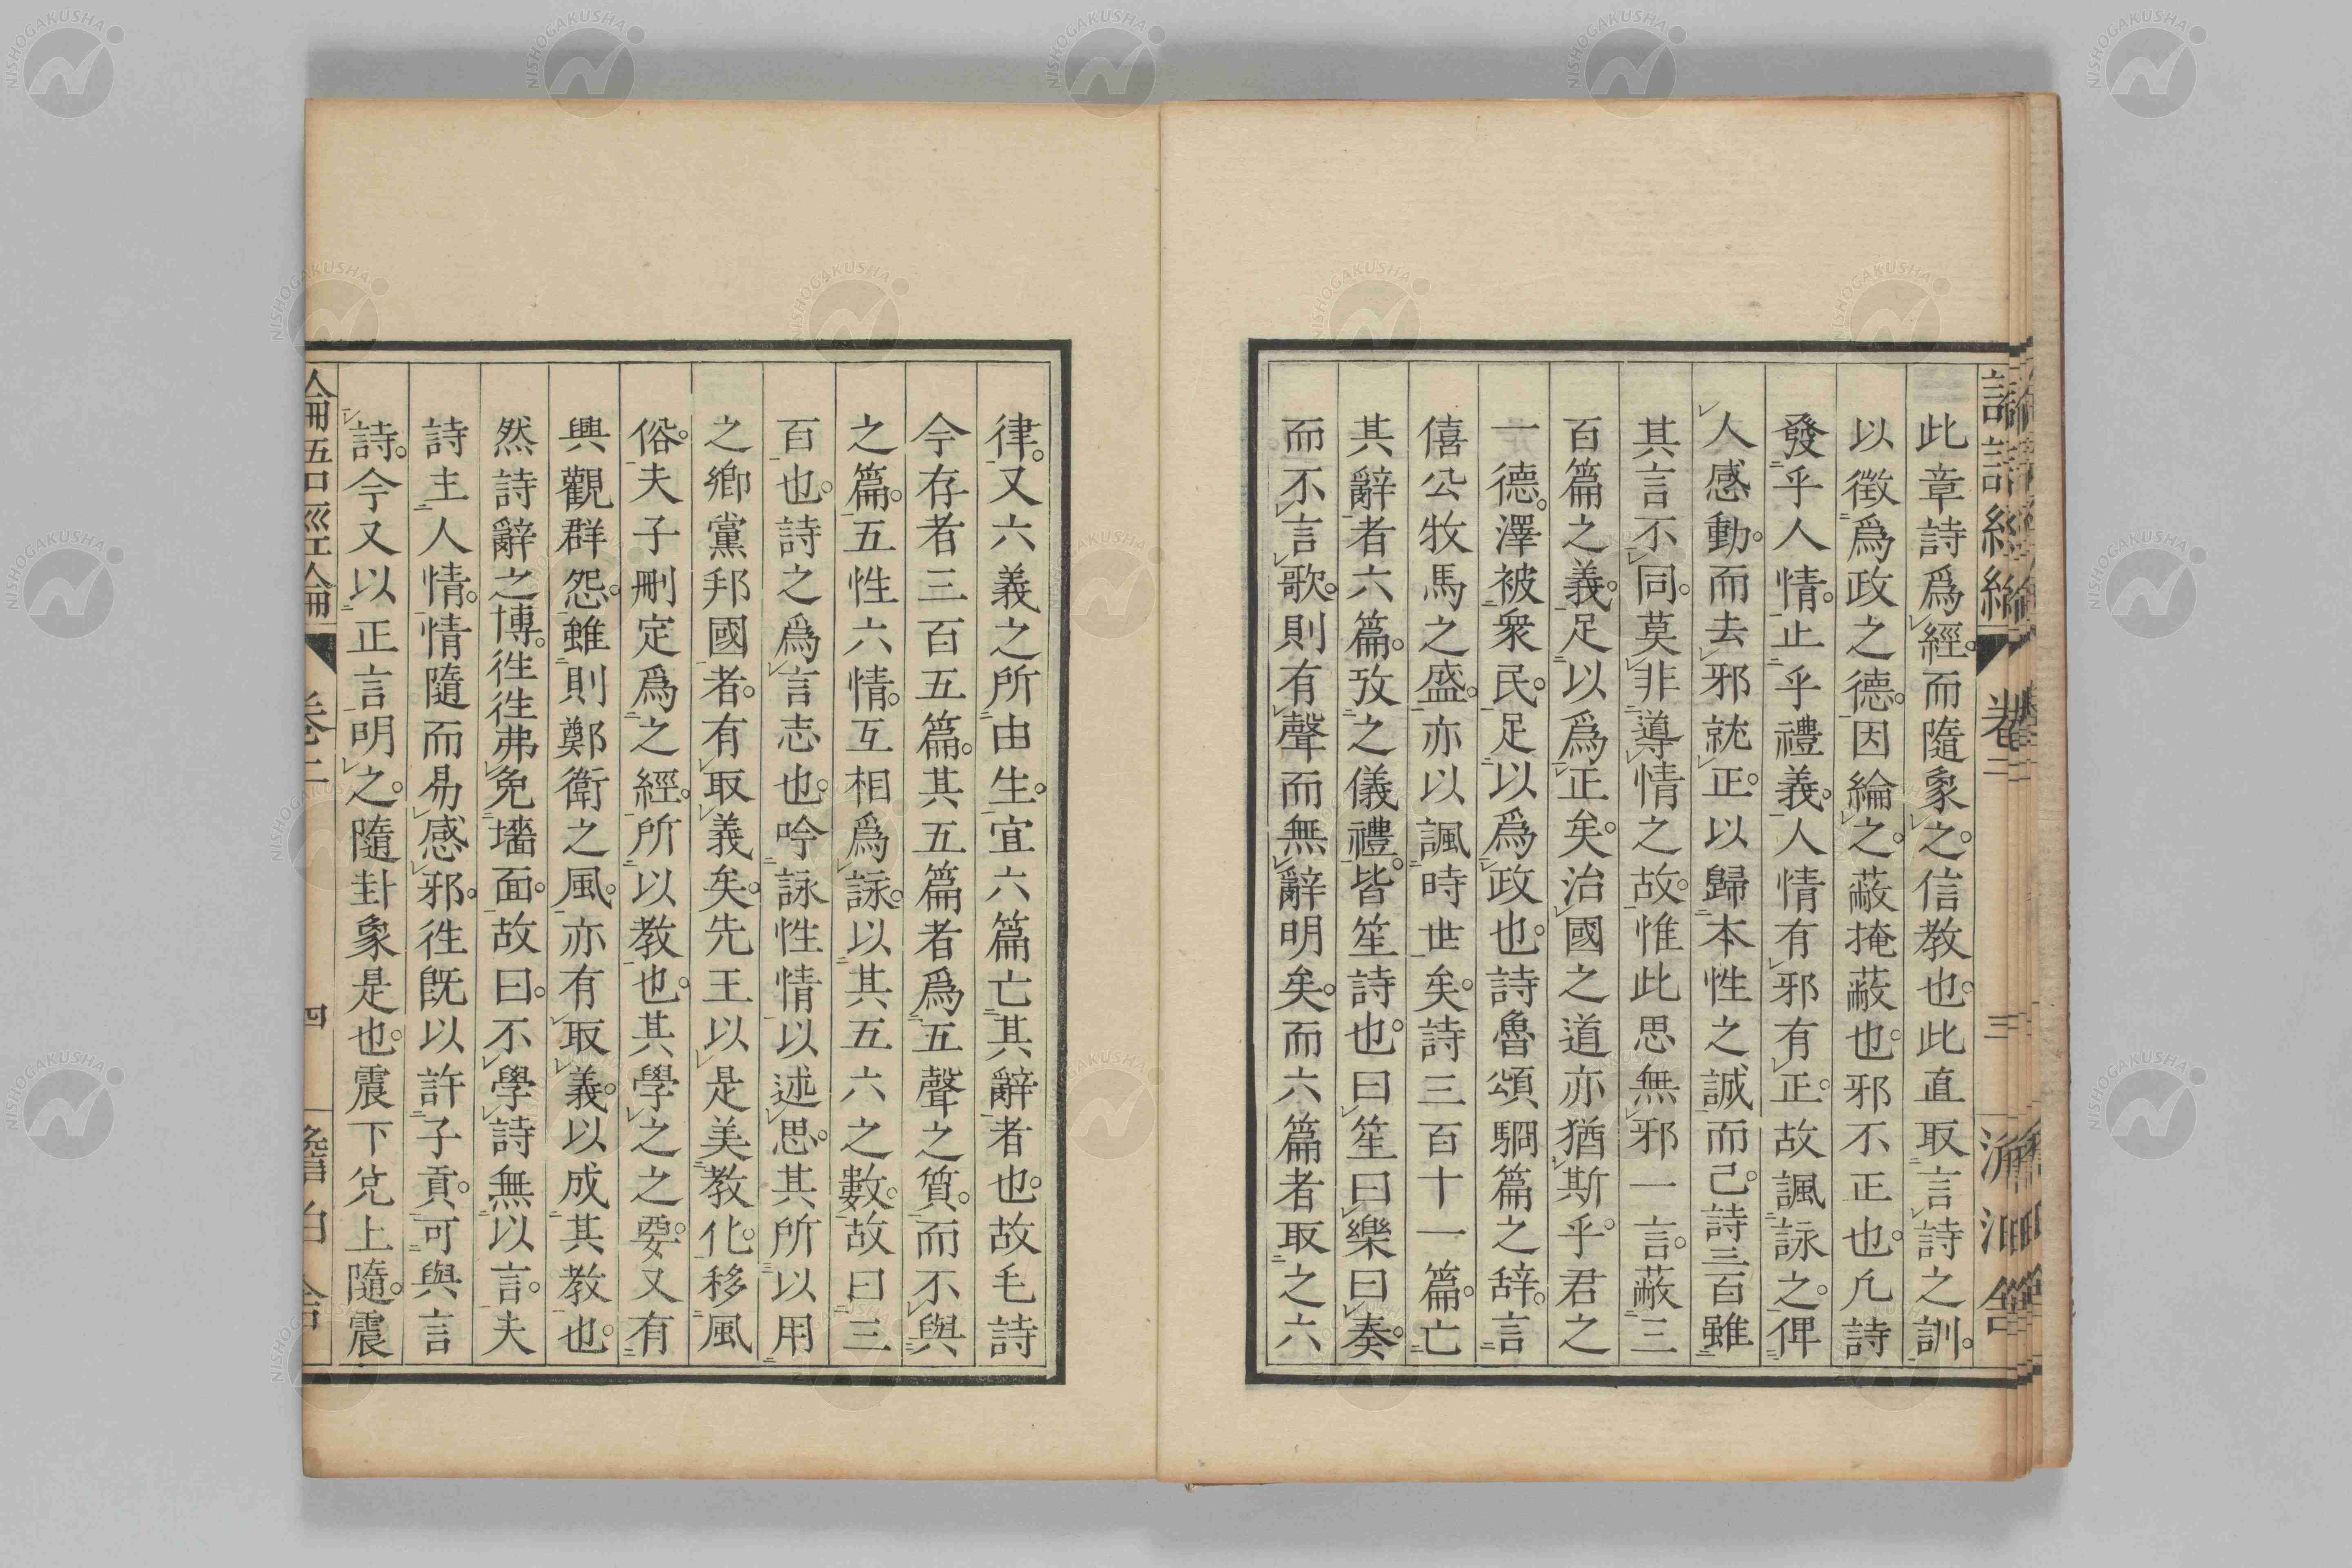 此章詩爲經。而隨象之。信教也。此直取言詩之訓。
以徵爲政之德。因綸之。蔽掩蔽也。邪不正也。凡詩
發乎人情。止乎禮義。人情有邪有正。故諷詠之。俾
人感動。而去邪就正。以歸本性之誠而己。詩三百雖
其言不同。莫非導情之故。惟此思無邪一言。蔽三
百篇之義。足以爲正矣。治國之道亦猶斯乎。君之
一德。澤被衆民。足以爲政也。詩魯頌駉篇之辞。言
僖公牧馬之盛。亦以諷時世矣。詩三百十一篇。亡
其辭者六篇。攷之儀禮。皆笙詩也。曰笙曰樂曰奏。
而不言歌。則有聲而無辭明矣。而六篇者取之六
律。又六義之所由生。宜六篇亡其辭者也。故毛詩
今存者三百五篇。其五篇者爲五聲之質。而不與
之篇。五性六情。互相爲詠。以其五六之數。故曰三
百也。詩之爲言志也。吟詠性情以述思。其所以用
之鄉黨邦國者。有取義矣。先王以是美教化。移風
俗。夫子刪定爲之經。所以教也。其學之之要。又有
興觀群怨。雖則鄭衛之風。亦有取義。以成其教也。
然詩辭之博。徃徃弗免墻面。故曰。不學詩無以言。夫
詩主人情。情隨而易感邪。徃既以許子貢。可與言
詩。今又以正言明之。隨卦象是也。震下兌上隨。震
論語經綸 卷二 四
卷二 三
NISHOGAKUSHA